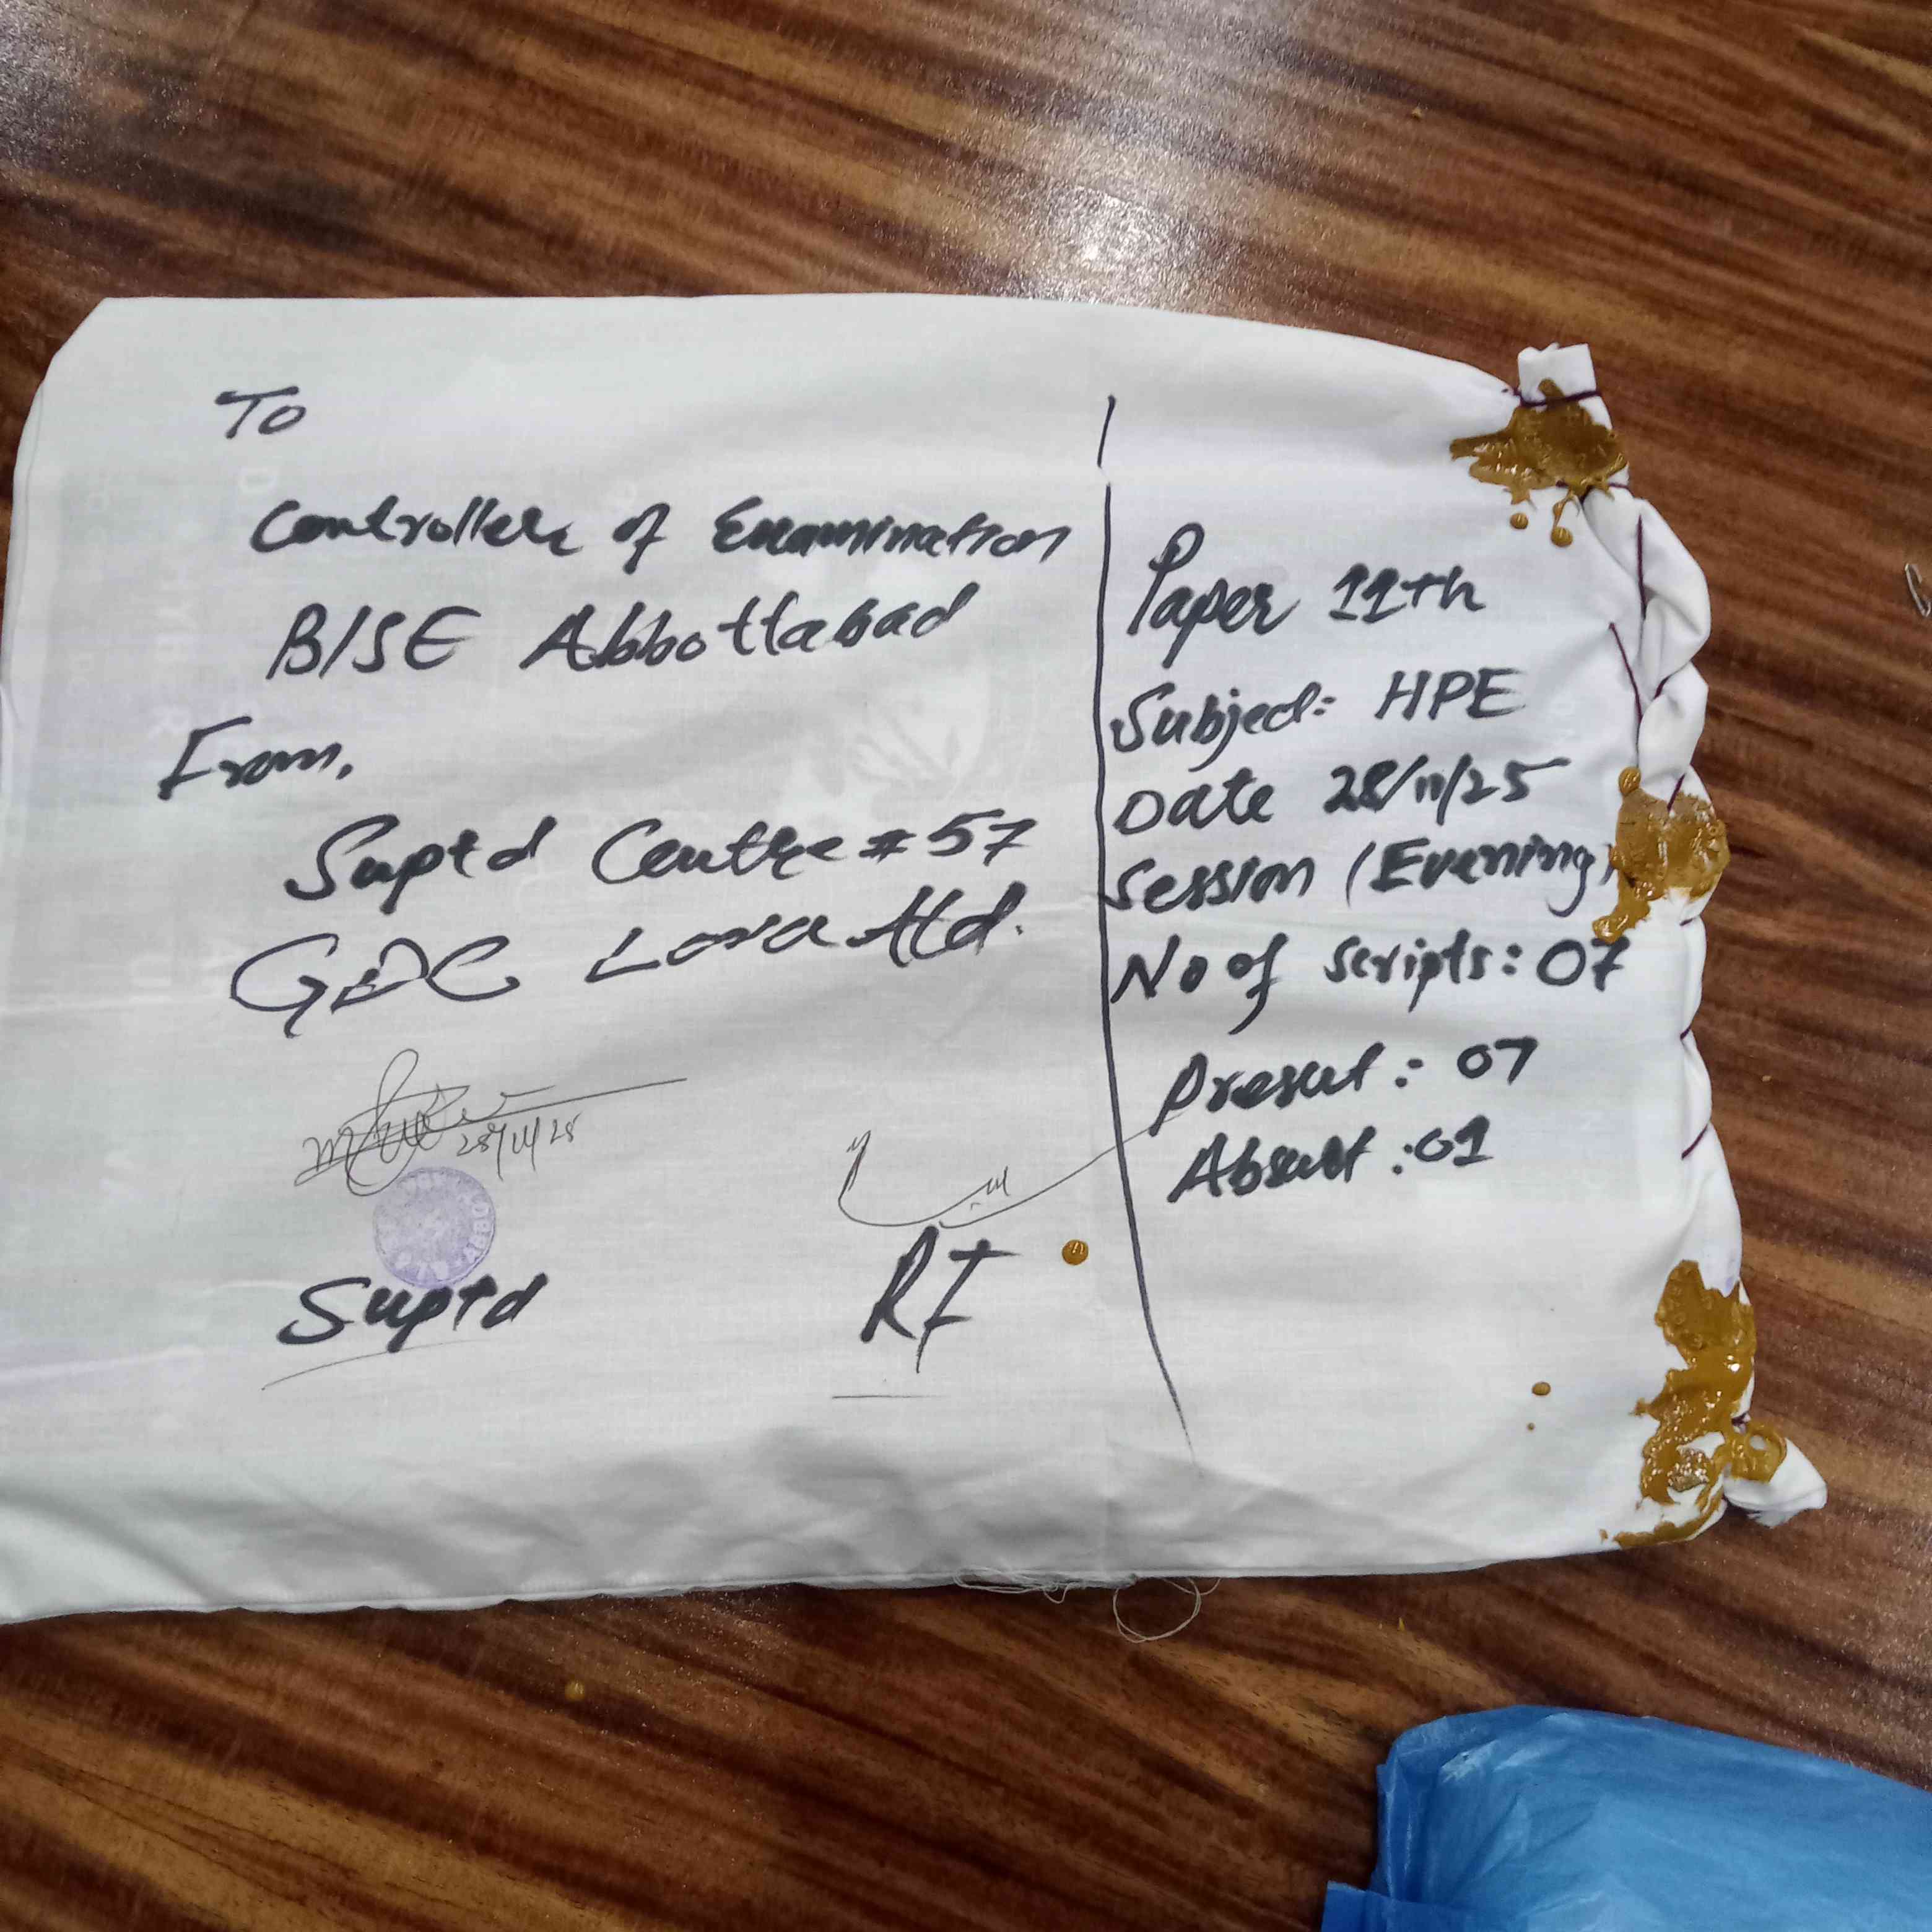 To
Controller of Examination
BISE Abbottabad
From,
Suptd Centre # 57
GDC Lora Atd.
28/11/25
Suptd
RI
Paper 11th
Subject: HPE
Date 28/11/25
Session (Evening)
No of scripts: 07
Present: 07
Absent: 01